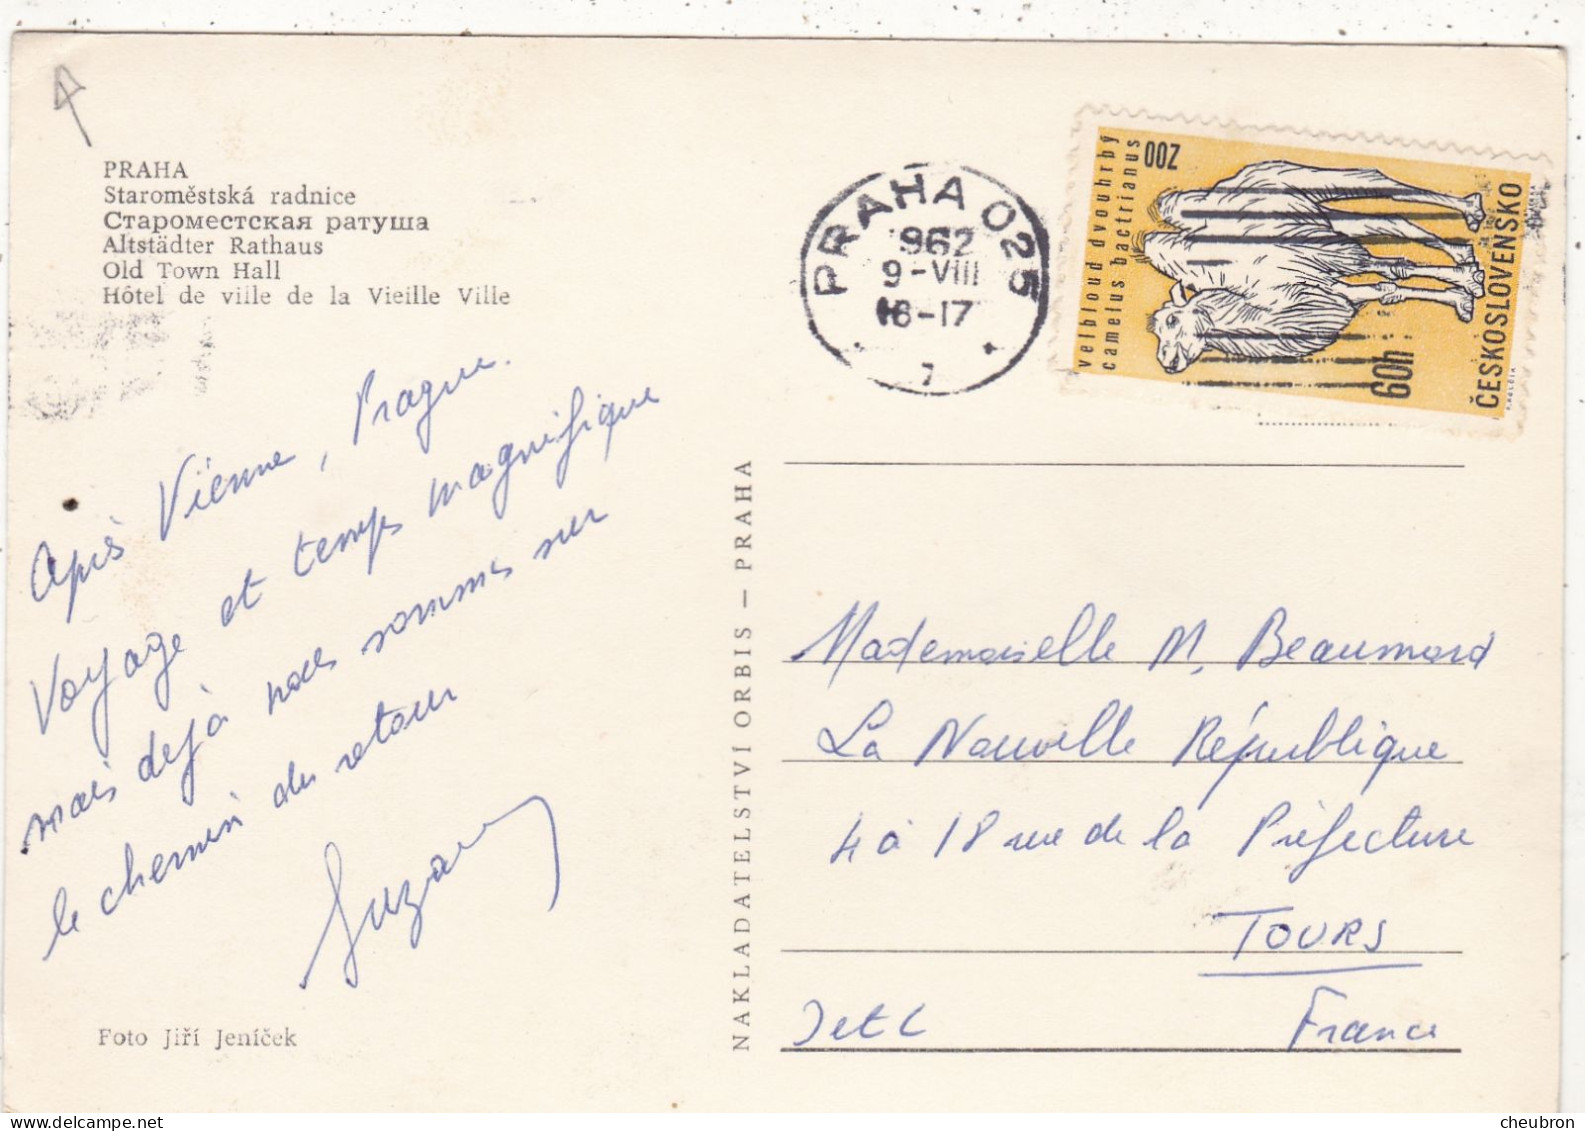 PRAHA
Staroměstská radnice
Староместская ратуша
Altstädter Rathaus
Old Town Hall
Hôtel de ville de la Vieille Ville
Après Vienne, Prague.
Voyage et temps magnifique
mais déjà nous sommes sur
le chemin du retour
Suzanne
Foto Jiří Jeníček
NAKLADATELSTVÍ ORBIS — PRAHA
PRAHA 025
1962
9-VIII
16-17
7
velbloud dvouhrbý
camelus bactrianus
ZOO
60h
ČESKOSLOVENSKO
Mademoiselle M. Beaumard
La Nouvelle République
4 à 18 rue de la Préfecture
TOURS
I et L France
cheubron